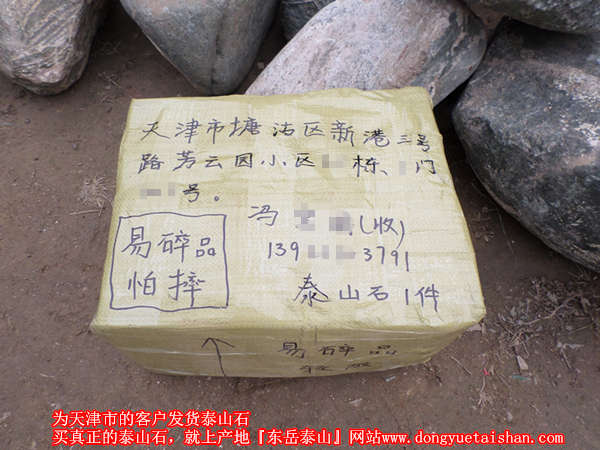 天津市塘沽区新港三号
路芳云园小区 栋、 门
号。
冯 (收)
139 3791
易碎品
怕摔
泰山石1件
易碎品
轻放
为天津市的客户发货泰山石
买真正的泰山石，就上产地『东岳泰山』网站www.dongyuetaishan.com